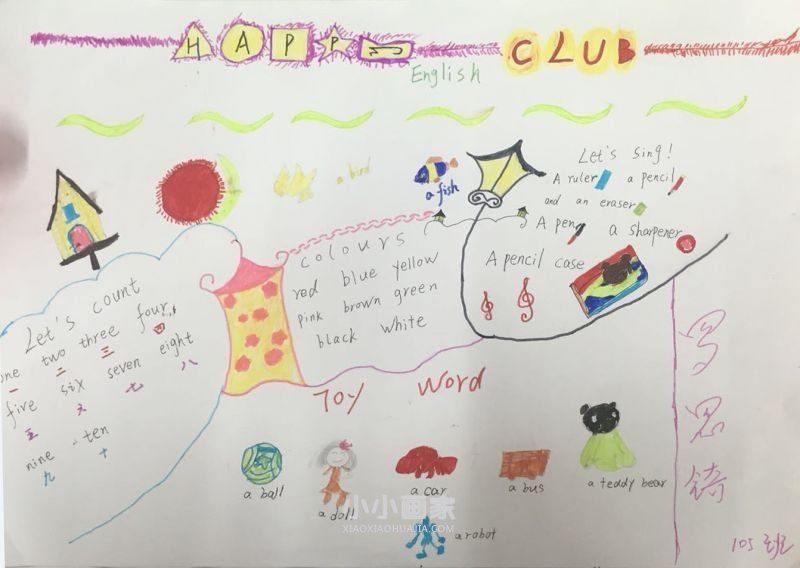 HAPPY CLUB
English
Let's sing!
A ruler a pencil
and an eraser
A pen a sharpener
A pencil case
a bird
a fish
colours
red blue yellow
pink brown green
black white
Let's count
one two three four
一 二 三 四
five six seven eight
五 六 七 八
nine ten
九 十
Toy Word
a ball
a doll
a car
a bus
a teddy bear
a robot
105班
小小画家
XIAOXIAOHUAJIA.COM